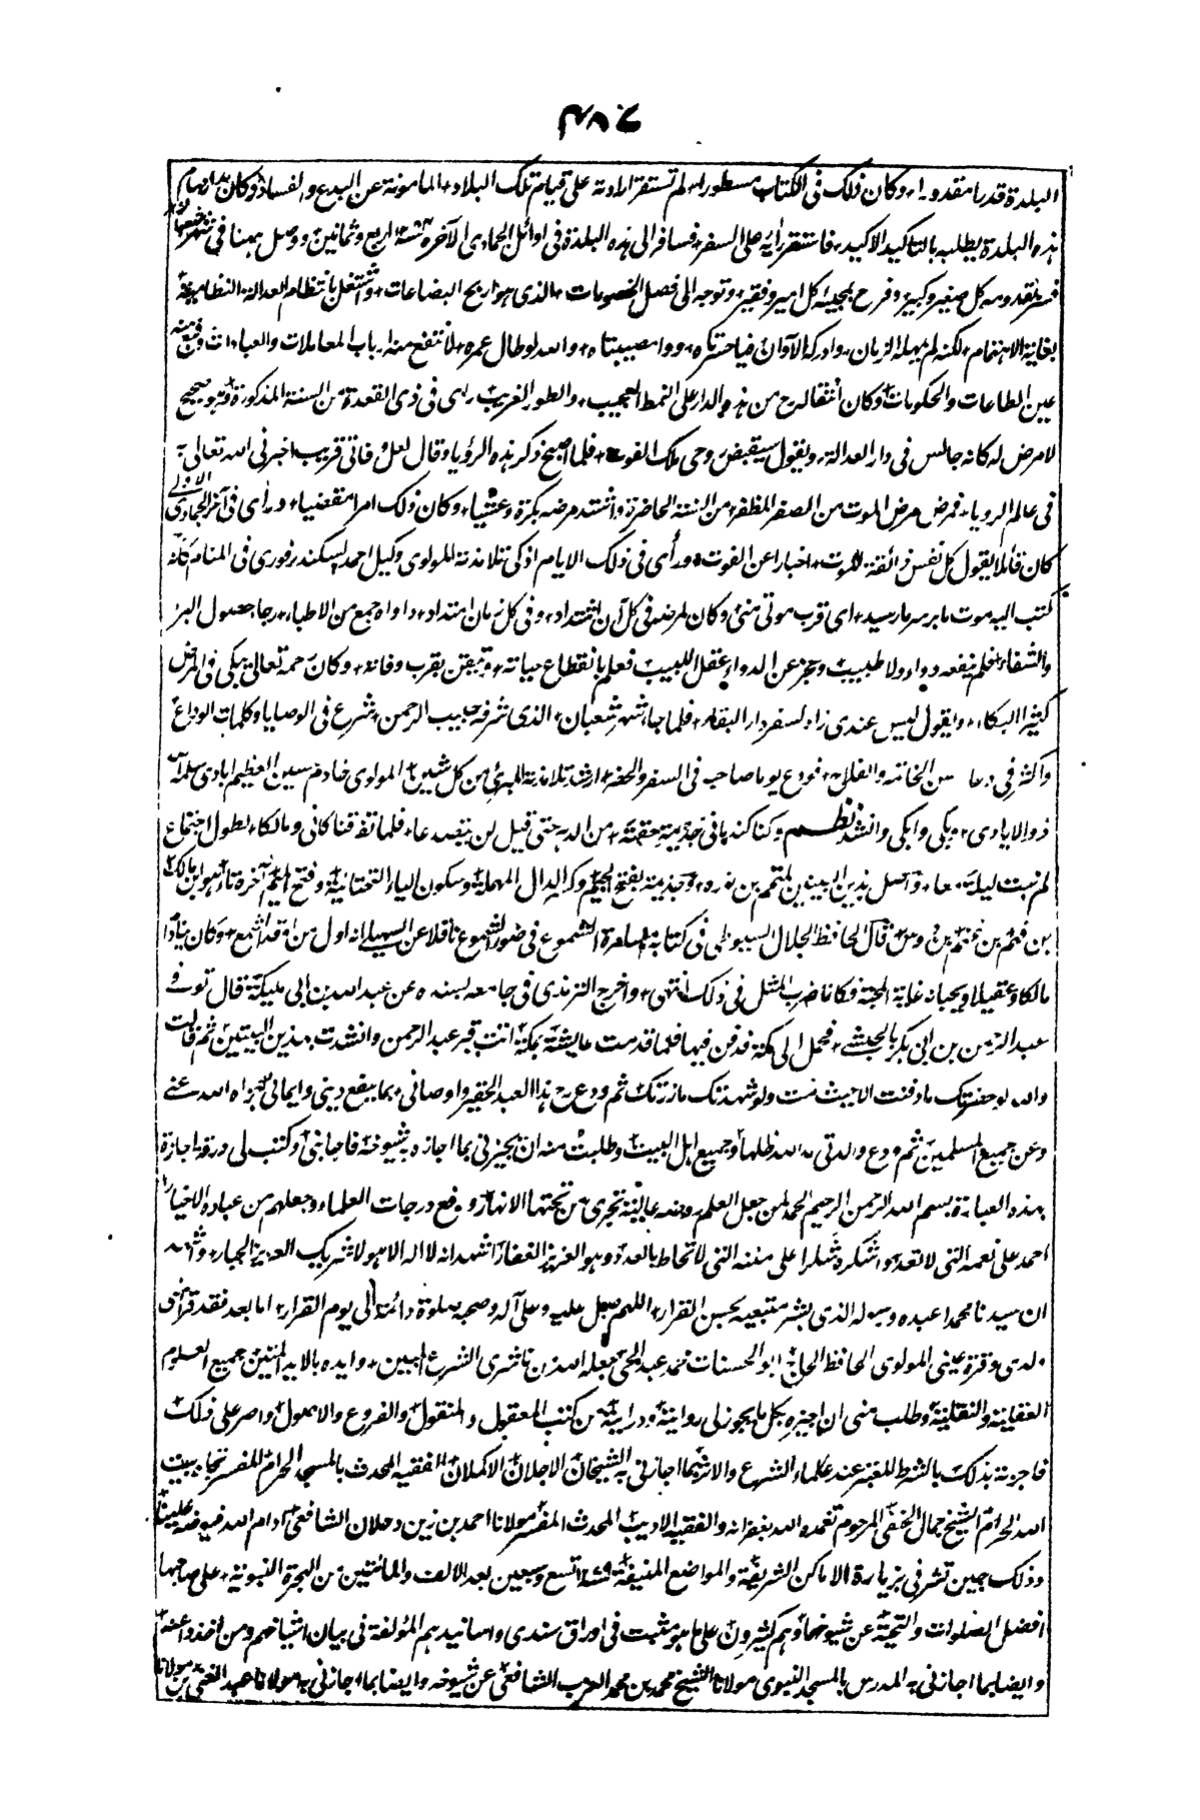 البلدة قدرا مقدورا، وكان ذلك فى الكتاب مسطورا، لم تستقر ارادته على قيام تلك البلاد، المامونة عن البدع والفساد، وكان
هذه البلدة يطلبه بالتاكيد الاكيد، فاستقر رأيه على السفر، فسافر الى هذه البلدة فى اوائل الجمادى الآخرة سنة اربع وثمانين ووصل ههنا فى
فسر بقدومه كل صغير وكبير، وفرح بمجيئه كل امير وفقير، وتوجه الى فصل الخصومات، الذى هو اربح البضاعات، واشتغل بانتظام العدالة النظامية
بغاية الاهتمام، لكنه لم يمهله الزمان، وادركه الآوان، فياحسرتاه، ووامصيبتاه، والله لو طال عمره لانتفع منه ارباب المعاملات والعبادات
عين الطاعات والحكومات، وكان انتقاله رح من هذه الدار على النمط العجيب، والطور الغريب، راى فى ذى القعدة من السنة المذكورة وهو صحيح
لا مرض له كانه جالس فى دار العدالة، ويقول سيقبض روحى ملك الفوت، فلما اصبح ذكر هذه الرؤيا وقال لعل وفاتى قريب اخبرنى الله تعالى به
فى عالم الرويا، فمرض مرض الموت من الصفر المظفر من السنة الحاضرة، واشتد مرضه بكرة وعشيا، وكان ذلك امرا مقضيا، ورأى فى آخر الجمادى الاولى
كان قائلا يقول كل نفس ذائقة الموت، اخبارا عن الفوت، ورأى فى ذلك الايام اذكى تلامذته المولوى وكيل احمد السكندرفورى فى المنام كانه
كتب اليه موت ما برسر ما رسيد، اى قرب موتى منى، وكان لمرضه فى كل آن اشتداد، وفى كل زمان امتداد، داواه جمع من الاطباء، رجاء حصول البرء
والشفاء، فلم ينفعه دواء ولا طبيب، وعجز عن الدواء عقل اللبيب، فعلم بانقطاع حياته، وتيقن بقرب وفاته، وكان رحمه تعالى يبكى فى المرض
كثير البكاء، ويقول ليس عندى زاد لسفر دار البقاء، فلما جاء شهر شعبان، الذى شرفه حبيب الرحمن، شرع فى الوصايا وكلمات الوداع
واكثر فى دعاء حسن الخاتمه والفلاح، فودع يوما صاحبه فى السفر والحضر، ارشد تلامذته المبرئ من كل شين، المولوى خادم حسين العظيم ابادى سلمه الله
ذو الايادى، وبكى وابكى وانشد نظـــم وكنا كندمانى جذيمة حقبة، من الدهر حتى قيل لن يتصدعا، فلما تفرقنا كانى ومالكا، لطول اجتماع
لم نبت ليلة معا، واصل هذين البيتين لمتمم بن نويره، وجذيمة بفتح الجيم وكسر الدال المهملة وسكون الياء التحتانية وفتح الميم آخره تاء، هو ابن مالك
بن فهم بن غنم بن دوس قال الحافظ الجلال السيوطى فى كتابه مسامرة الشموع فى ضوء الشموع ناقلا عن السهيلى انه اول من اوقد الشمع، وكان ينادم
مالكا وعقيلا ويحبانه غاية المحبة فكانا ضرب المثل فى ذلك انتهى، واخرج الترمذى فى جامعه بسنده عن عبد الله بن ابى مليكة قال توفى
عبد الرحمن بن ابى بكر بالحبشى، فحمل الى مكة فدفن فيها فلما قدمت عايشة بمكة اتت قبر عبد الرحمن وانشدت بهذين البيتين ثم قالت
والله لو حضرتك ما دفنت الا حيث مت ولو شهدتك ما زرتك ثم ودع رح هذا العبد الحقير واوصانى، بما ينفع دينى وايمانى جزاه الله عنى
وعن جميع المسلمين ثم ودع والدتى مد الله ظلها وجميع اهل البيت، وطلبت منه ان يجيزنى بما اجازه به شيوخه فاجابنى، وكتب لى ورقة اجازة
بهذه العبارة بسم الله الرحمن الرحيم الحمد لمن جعل العلم وجنة عالية تجرى من تحتها الانهار ورفع درجات العلماء وجعلهم من عباده الاخيار
احمد على نعمه التى لا تعد، واشكره شكرا على مننه التى لا تحاط بالعد، وهو العزيز الغفار، اشهد انه لا اله الا هو لا شريك العزيز الجبار، واشهد
ان سيدنا محمدا عبده ورسوله الذى بشر متبعيه بحسن القرار، اللهم صل عليه وعلى آله وصحبه صلوة دائمة الى يوم القرار، اما بعد فقد قرأ منى
ولدى وقرة عينى المولوى الحافظ الحاج ابو الحسنات محمد عبد الحى جعله الله من ناشرى الشرع المبين، وايده بالايد المتين جميع العلوم
العقلية والنقلية، وطلب منى ان اجيزه بكل ما يجوز لى رواية ودراية من كتب المعقول والمنقول والفروع والاصول، واصر على ذلك
فاجزته بذلك بالشرط المعتبر عند علماء الشرع والاثر كما اجازنى به الشيخان الاجلان الاكملان الفقيه المحدث بالمسجد الحرام المفسر تجاه بيت
الله الحرام الشيخ جمال الحنفى المرحوم تغمده الله بغفرانه والفقيه الاديب المحدث المفسر مولانا احمد بن زين دحلان الشافعى ادام الله فيوضه علينا
وذلك حين تشرفى بزيارة الاماكن الشريفة والمواضع المنيفة سنة تسع وسبعين بعد الالف والمائتين من الهجرة النبوية، على صاحبها
افضل الصلوات والتحية عن شيوخهما وهم كثيرون على ما هو مثبت فى اوراق سندى واسانيدهم المؤلفة فى بيان اشياخهم ومن اخذوا عنه
وايضا بما اجازنى به المدرس بالمسجد النبوى مولانا الشيخ محمد بن محمد العرب الشافعى عن شيوخه وايضا بما اجازنى به مولانا عبد الغنى بن مولانا